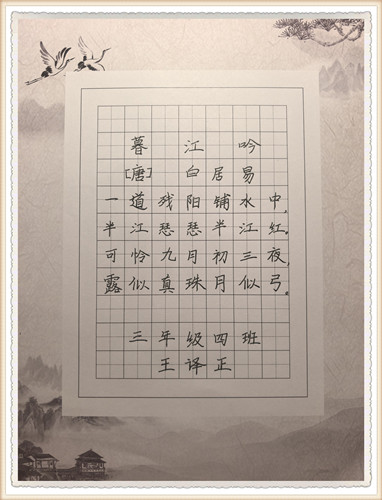 暮江吟
[唐]白居易
一道残阳铺水中，
半江瑟瑟半江红。
可怜九月初三夜，
露似真珠月似弓。
三年级四班
王译正